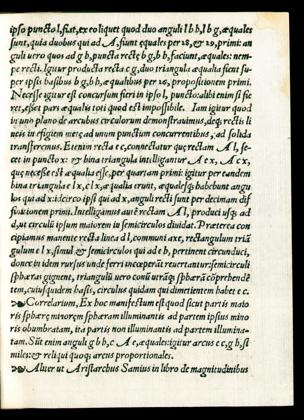 ipso puncto l, fiat, ex eo liquet quod duo anguli l b b, l b g, æquales
sunt, quia duobus qui ad A, fiunt æquales per 28, & 29, primi: an
guli uero quos ad g b b, puncta rectę b g, b b, faciunt, æquales: nem-
pe recti. Igitur producta recta c g, duo triangula æqualia fient su-
per ipsis basibus b g, b b, & æqualibus per 26, propositionem primi.
Necesse igitur est concursum fieri in ipso l, puncto: alibi enim si fie
ret, esset pars æqualis toti quod est impossibile. Iam igitur quod
in uno plano de arcubus circulorum demonstrauimus, deq; rectis li
neis in effigiem metę ad unum punctum concurrentibus, ad solida
transferemus. Etenim recta e c, connectatur quę rectam A l, se-
cet in puncto x: & bina triangula intelligantur A e x, A c x,
quę necesse est æqualia esse, per quartam primi: igitur per eandem
bina triangula e l x, c l x, æqualia erunt, æqualesq; habebunt angu
los qui ad x: idcirco ipsi qui ad x, anguli recti sunt per decimam dif
finitionem primi. Intelligamus autē rectam A l, produci usq; ad
d, ut circulū ipsum maiorem in semicirculos diuidat. Præterea con
cipiamus manente recta linea d l, communi axe, rectangulum triā
gulum e l x, simul & semicirculos qui ad e b, pertinent circunduci,
donec in idem rursus unde ferri inceperāt reuertantur: semicirculi
sphæras gignent, triangulū uero conū utrāq; sphærā cōprehendē
tem, cuiusquidem basis, circulus quidam qui dimetientem habet e c.
Correlarium, Ex hoc manifestum est quod sicut partis maio
ris sphærę minorem sphæram illuminantis ad partem ipsius mino
ris obumbratam, ita partis non illuminantis ad partem illumina-
tam. Sūt enim anguli g b b, c A e, æquales: igitur arcus e c, g b, si
miles: & reliqui quoq; arcus proportionales.
Aliter ut Aristarchus Samius in libro de magnitudinibus